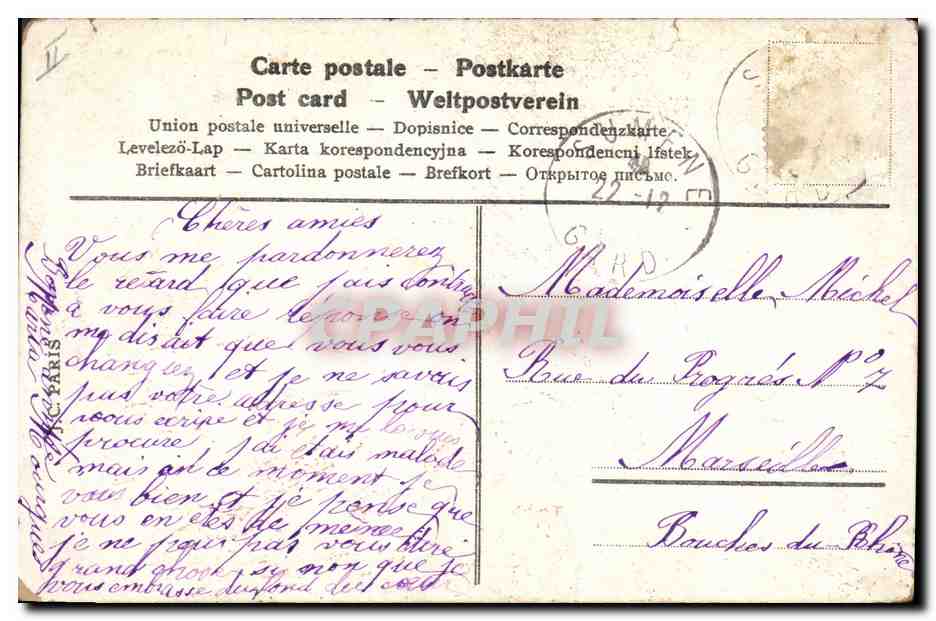 II
Carte postale – Postkarte
Post card – Weltpostverein
Union postale universelle — Dopisnice — Correspondenzkarte
Levelező-Lap — Karta korespondencyjna — Korespondencni lfstek
Briefkaart — Cartolina postale — Brefkort — Открытое письмо.
SUMÈNE
22 -12
GARD
Chères amies
Vous me pardonnerez
le retard que jais
à vous faire réponse on
me disait que vous vous
changiez et je ne savais
pas votre adresse pour
vous écrire et je me
procure jai étais malade
mais en ce moment je
vais bien et je pense que
vous en êtes de même
je ne puis pas vous dire
grand chose si non que je
vous embrasse du fond du
Maria
J.C. PARIS
CPAPHIL
Mademoiselle Michel
Rue du Progrés N° 7
Marseille
Bouches du Rhône